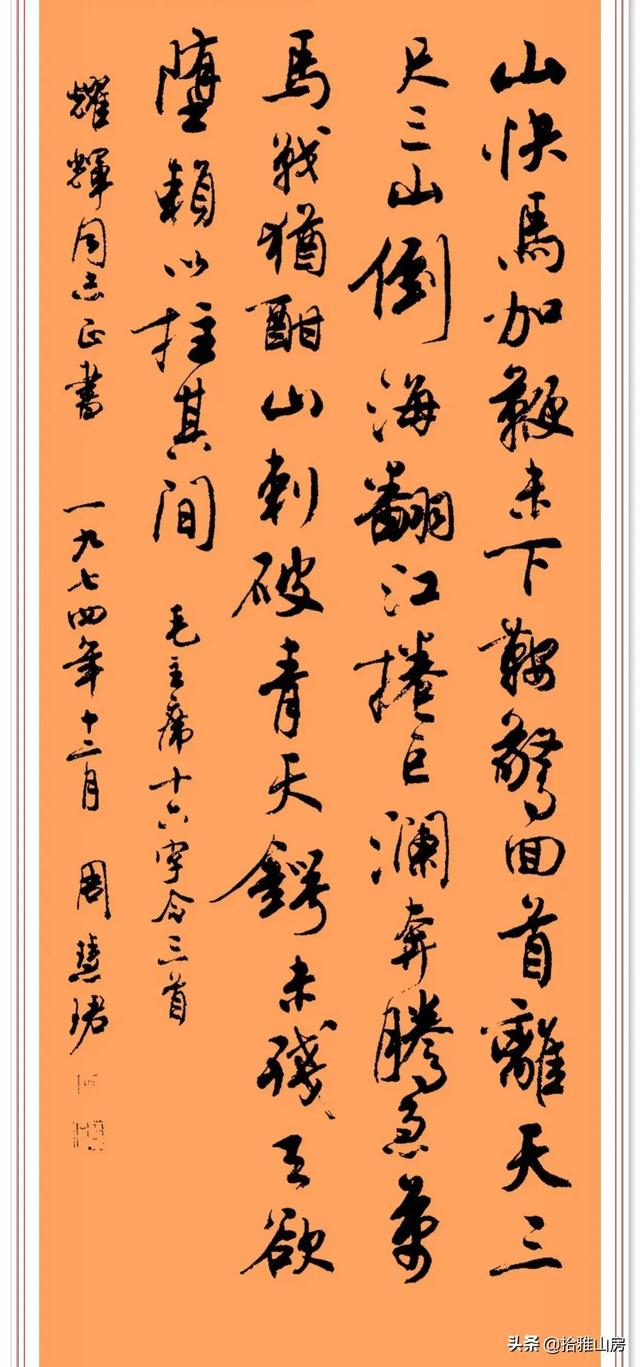 山快馬加鞭未下鞍驚回首離天三
尺三山倒海翻江捲巨瀾奔騰急萬
馬戰猶酣山刺破青天鍔未殘天欲
墮賴以拄其間 毛主席十六字令三首
耀輝同志正書 一九七四年十二月 周慧珺
头条 @拾雅山房